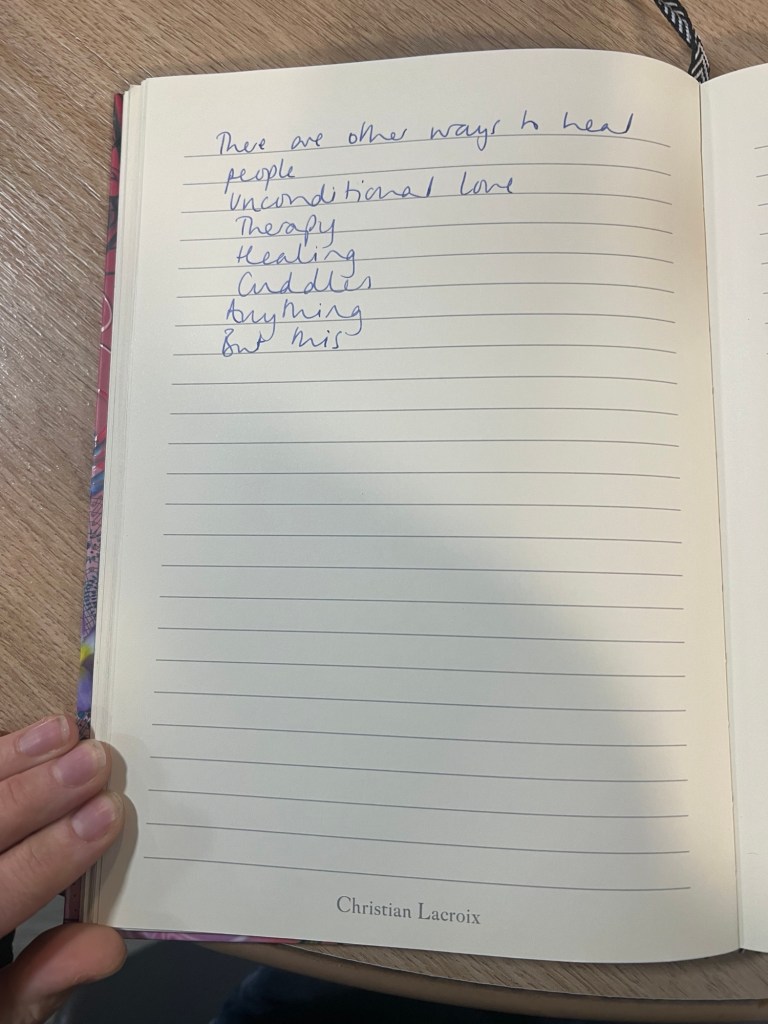 There are other ways to heal
people
Unconditional love
Therapy
Healing
Cuddles
Anything
But this
Christian Lacroix